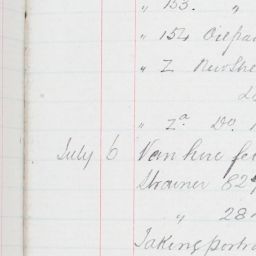 " 153. "
" 154 Oilpa
" Z New She
" Zᵃ Do.
July 6 Van hire fe
Strainer 82
" 28
Taking portr